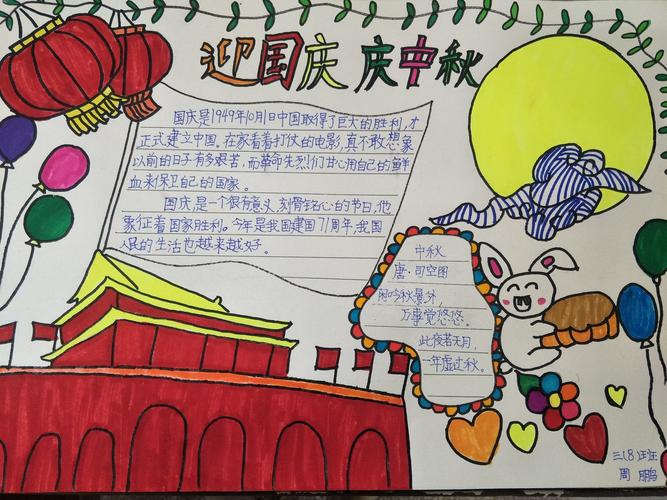 迎国庆 庆中秋
国庆是1949年10月1日中国取得了巨大的胜利,才
正式建立中国。在家看着打仗的电影,真不敢想象
以前的日子有多艰苦,而革命先烈们甘心用自己的鲜
血来保卫自己的国家。
国庆,是一个很有意义,刻骨铭心的节日,他
象征着国家胜利。今年是我国建国71周年,我国
人民的生活也越来越好。
中秋
唐·司空图
闲吟秋景外,
万事觉悠悠。
此夜若无月,
一年虚过秋。
三(8)班
周鹏